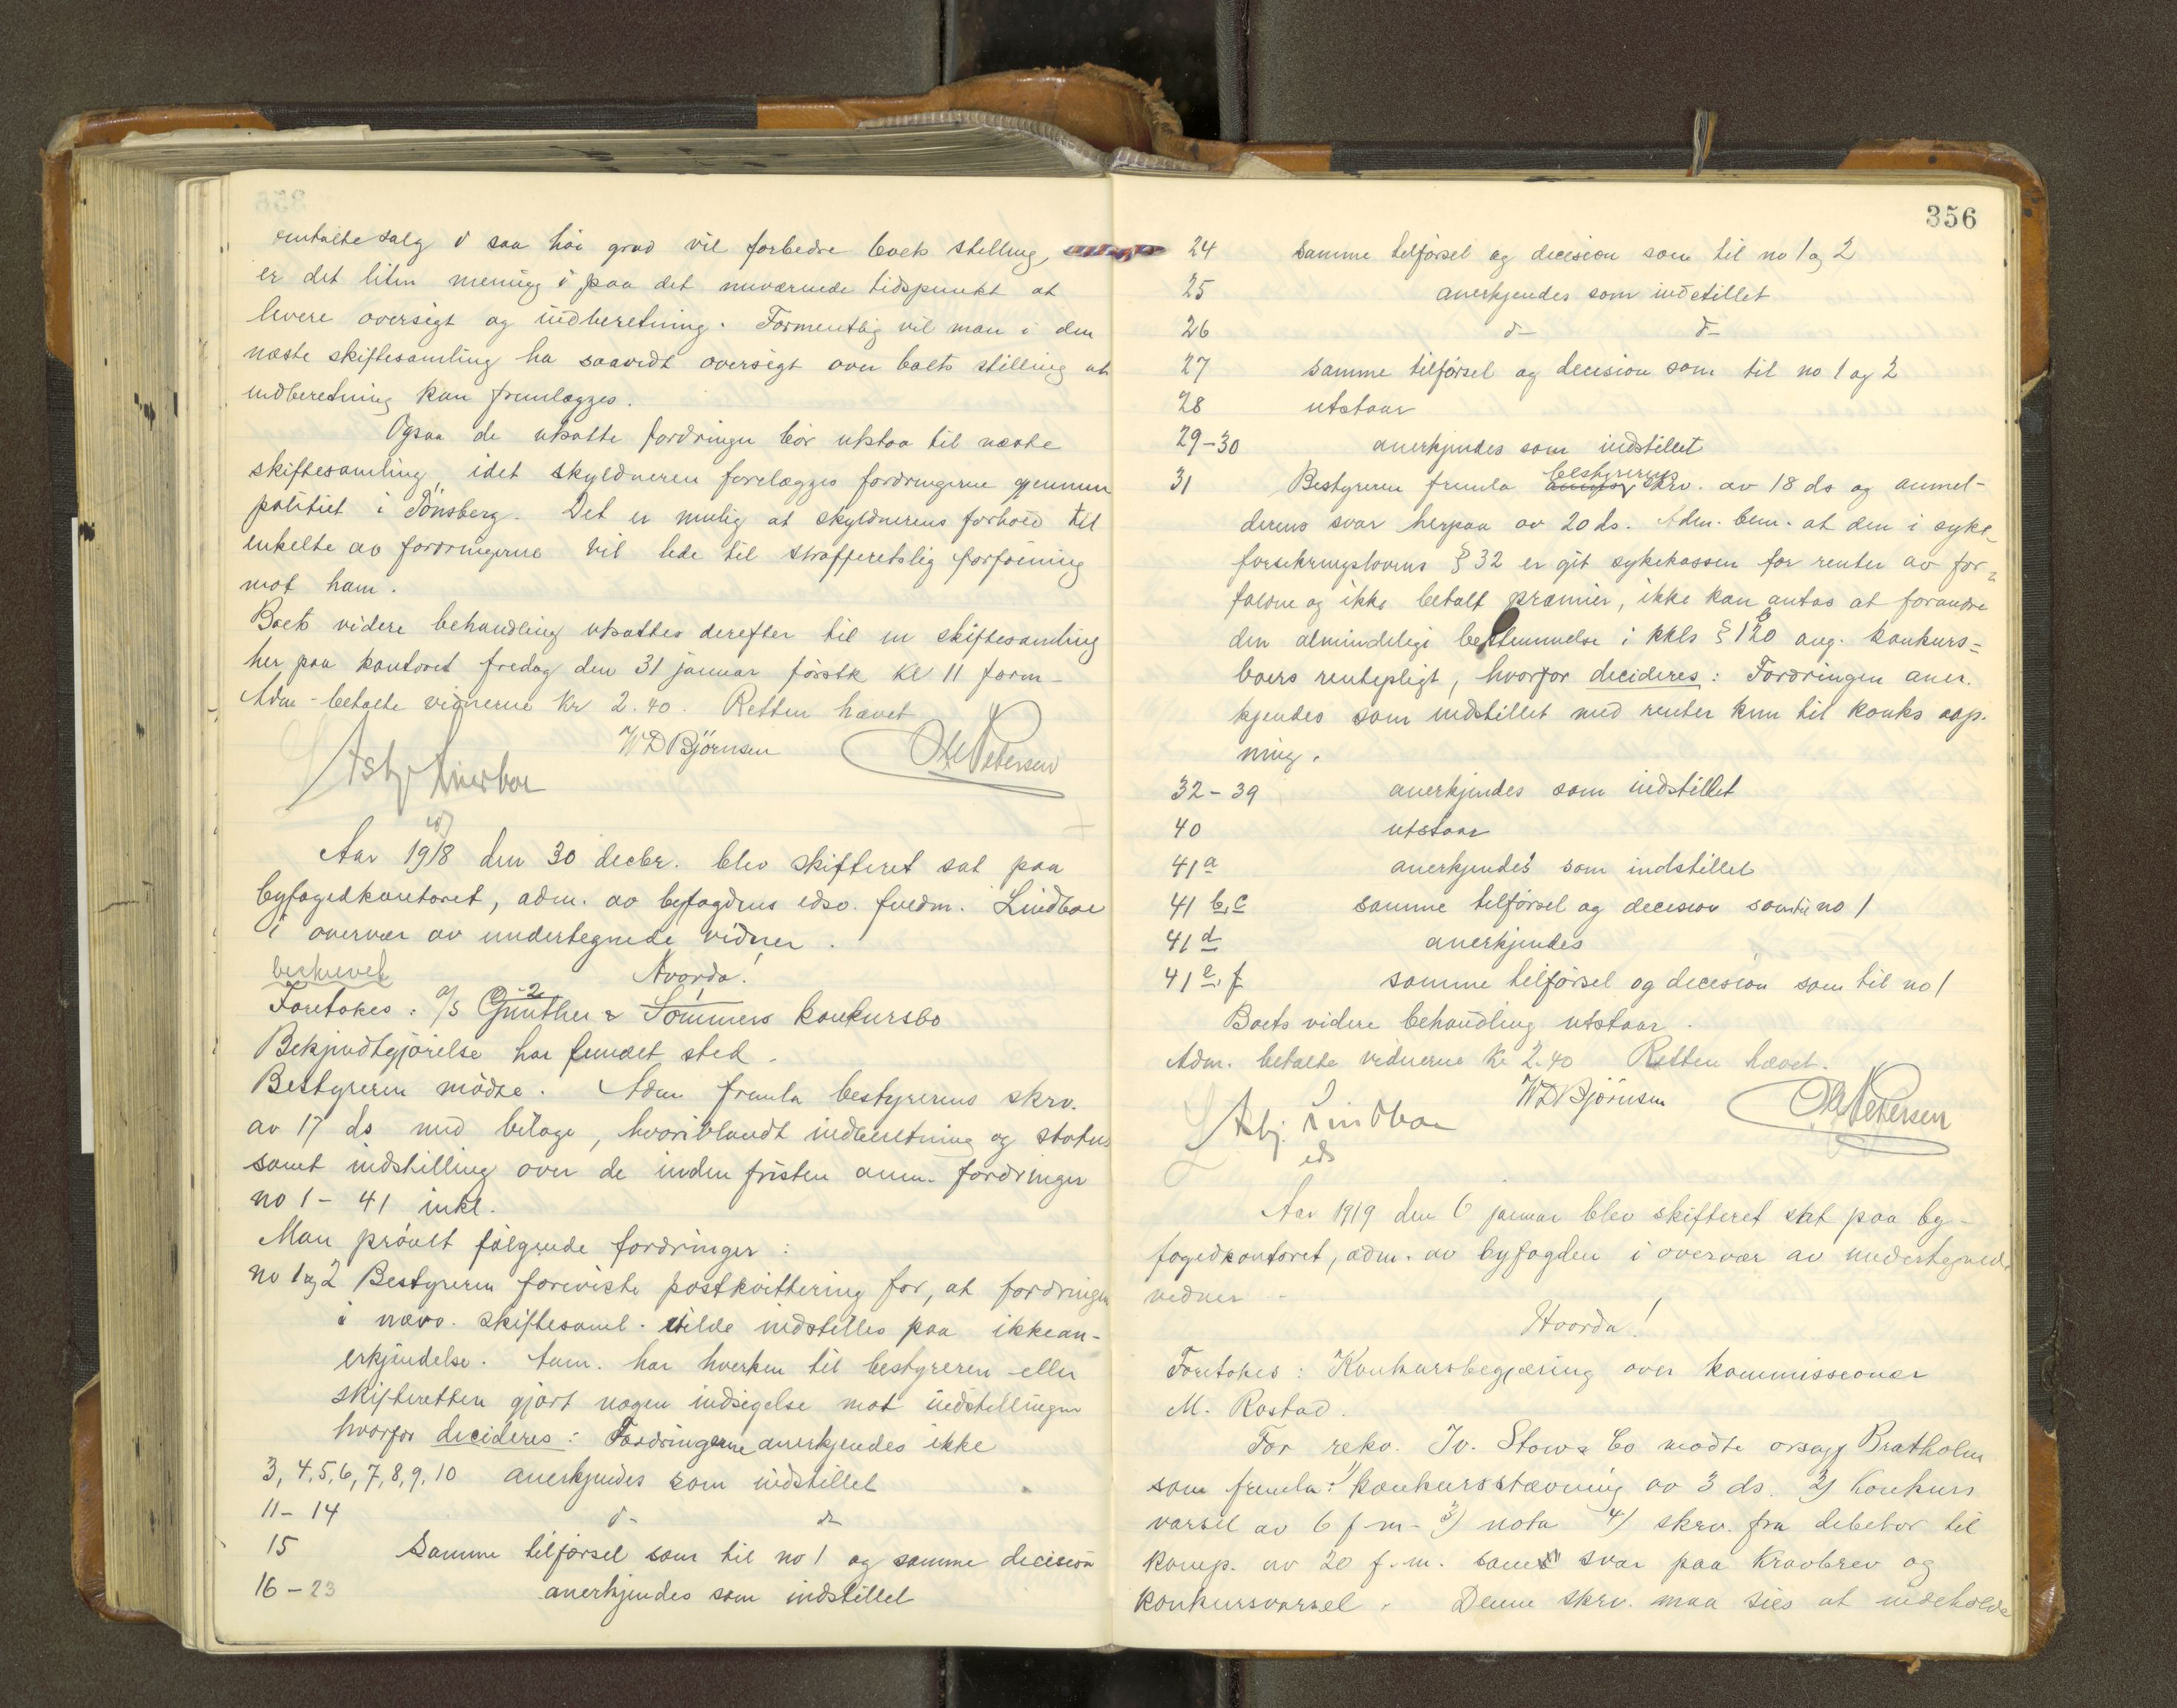 omtalte salg i saa høi grad vil forbedre boets stilling,
er det liten mening i paa det nuværende tidspunkt at
levere oversigt og indberetning. Formentlig vil man i den
næste skiftesamling ha saavidt oversigt over boets stilling at
indberetning kan fremlægges.
Ogsaa de utsatte fordringer bør utstaa til næste
skiftesamling, idet skyldneren forelægges fordringerne gjennem
politiet i Tönsberg. Det er mulig at skyldnerens forhold til
enkelte av fordringerne vil lede til strafferetslig forföining
mot ham.
Boets videre behandling utsattes derefter til en skiftesamling
her paa kontoret fredag den 31 januar förstk kl 11 form-
Adm - betalte vidnerne kr 2.40. Retten hævet
W D Björnsen
Asbj Lindboe
Ole Petersen
Aar 1918 den 30 decbr. blev skifteret sat paa
byfogedkontoret, adm. av byfogdens edsv. fuldm. Lindboe
i overvær av undertegnede vidner.
beskrevet
Hvorda!
Foretokes: A/S Günther & Sommers konkursbo
Bekjendtgjörelse har fundet sted.
Bestyreren mödte. Adm fremla bestyrerens skrv.
av 17 ds med bilage, hvoriblandt indberetning og status
samt indstilling over de inden fristen anm. fordringer
no 1 - 41 inkl.
Man prövet fölgende fordringer:
no 1 og 2 Bestyreren foreviste postkvittering for, at fordringen
i nærv. skiftesaml. vilde indstilles paa ikkean-
erkjendelse. Anm. har hverken til bestyreren eller
skifteretten gjort nogen indsigelse mot indstillingen
hvorfor decideres: Fordringerne anerkjendes ikke
3, 4, 5, 6, 7, 8, 9, 10 anerkjendes som indstillet
11 - 14 d- d-
15 Samme tilförsel som til no 1 og samme decision
16 - 23 anerkjendes som indstillet
356
24 Samme tilförsel og decision som til no 1 og 2
25 anerkjendes som indstillet
26 d- d-
27 samme tilförsel og decision som til no 1 og 2
28 utstaar
29-30 anerkjendes som indstillet
31 Bestyreren fremla bestyrerens skrv. av 18 ds og anmel-
derens svar herpaa av 20 ds. Adm. bem. at den i syke-
forsikringslovens § 32 er git sykekassen for renter av for-
faldne og ikke betalt præmier, ikke kan antas at forandre
den almindelige bestemmelse i kkls § 120 ang. konkurs-
boers rentepligt, hvorfor decideres: Fordringen aner-
kjendes som indstillet med renter kun til konks aap-
ning.
32 - 39 anerkjendes som indstillet
40 utstaar
41 a anerkjendes som indstillet
41 b, c samme tilförsel og decision som til no 1
41 d anerkjendes
41 e, f samme tilförsel og decision som til no 1
Boets videre behandling utstaar.
Adm. betalte vidnerne kr 2.40 Retten hævet.
W D Björnsen
Asbj. Lindboe
Ole Petersen
eds
Aar 1919 den 6 januar blev skifteret sat paa by-
fogedkontoret, adm. av byfogden i overvær av undertegnede
vidner -
Hvorda!
Foretokes: Konkursbegjæring over kommissionær
M. Rostad.
For rekv. Iv. Stow & Co mödte orsagf Bratholm
som fremla: 1) konkursstævning av 3 ds. 2) konkurs
varsel av 6 f.m. 3) nota 4) skrv. fra debitor til
komp. av 20 f.m. som svar paa kravbrev og
konkursvarsel. Denne skrv. maa sies at indeholde